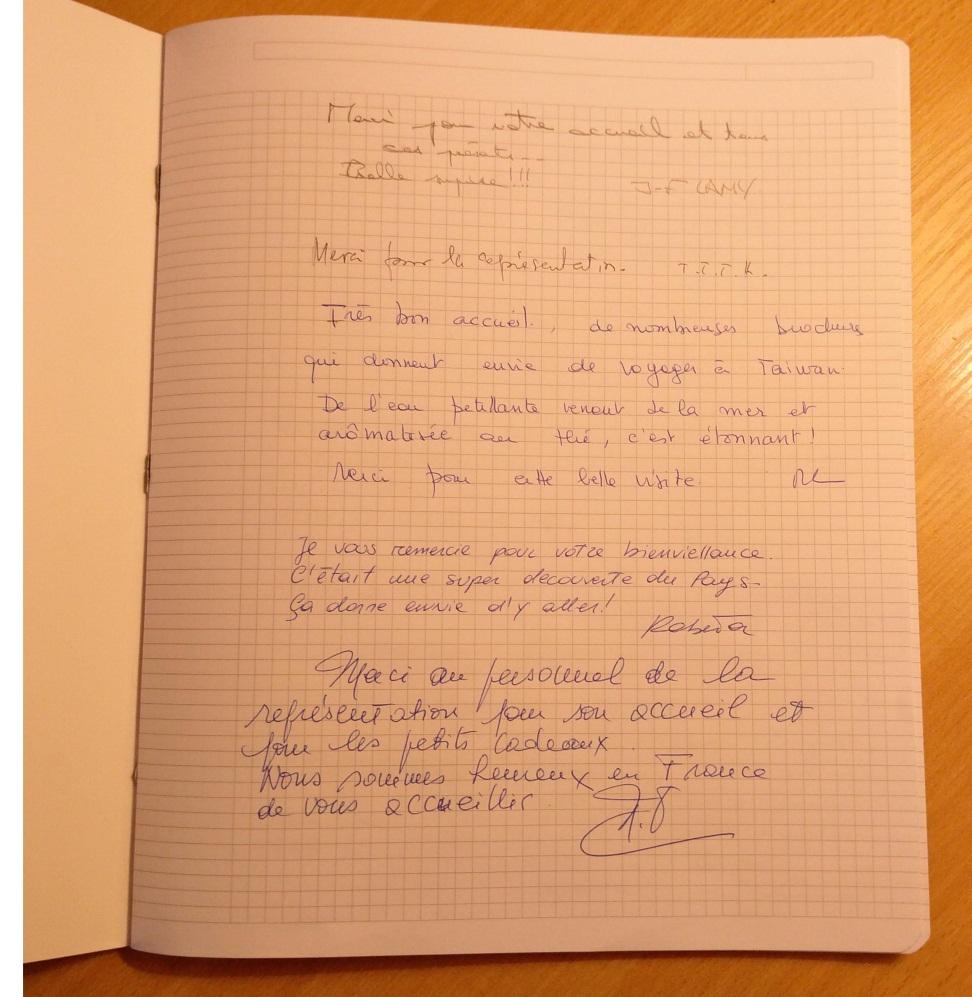 Merci pour votre accueil et tous
ces présents...
Belle surprise!!!
J-F LAMY
Merci pour la représentation. T.T.T.K.
Très bon accueil, de nombreuses brochures
qui donnent envie de voyager à Taiwan.
De l'eau petillante venant de la mer et
arômatisée au thé, c'est étonnant!
Merci pour cette belle visite.
Je vous remercie pour votre bienviellance.
C'était une super découverte du Pays.
Ça donne envie d'y aller!
Roberta
Merci au personnel de la
représentation pour son accueil et
pour les petits cadeaux.
Nous sommes heureux en France
de vous accueillir.